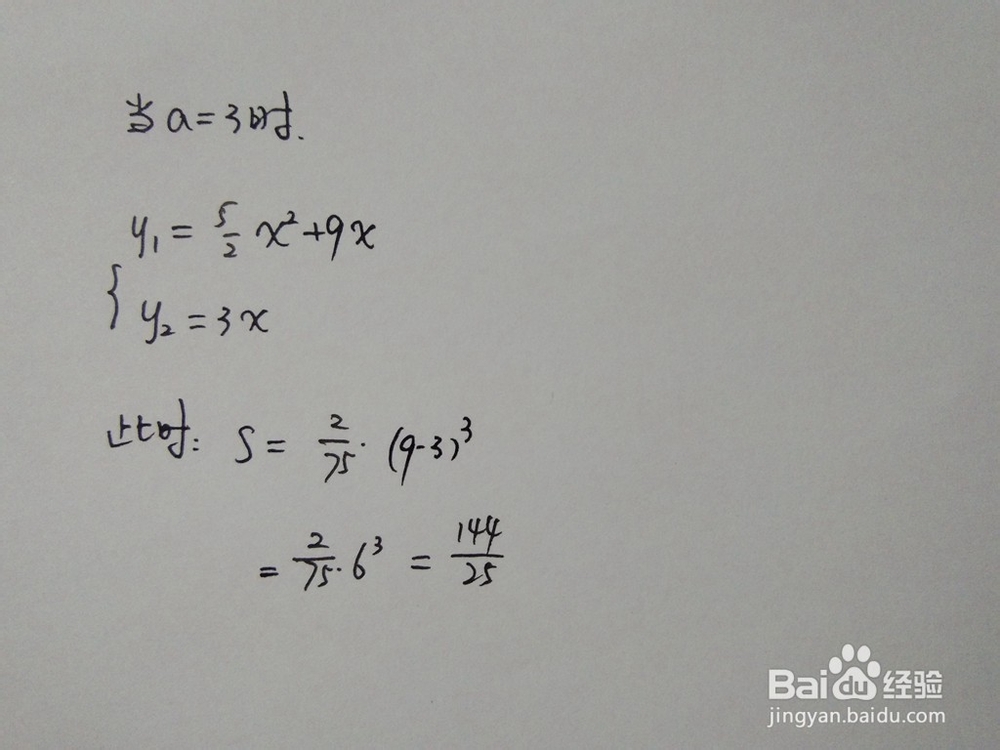 当 a=3时.
y₁ = 5/2 x²+9x
{ y₂ = 3x
此时: S = 2/75 · (9-3)³
= 2/75 · 6³ = 144/25
Baidu 经验
jingyan.baidu.com